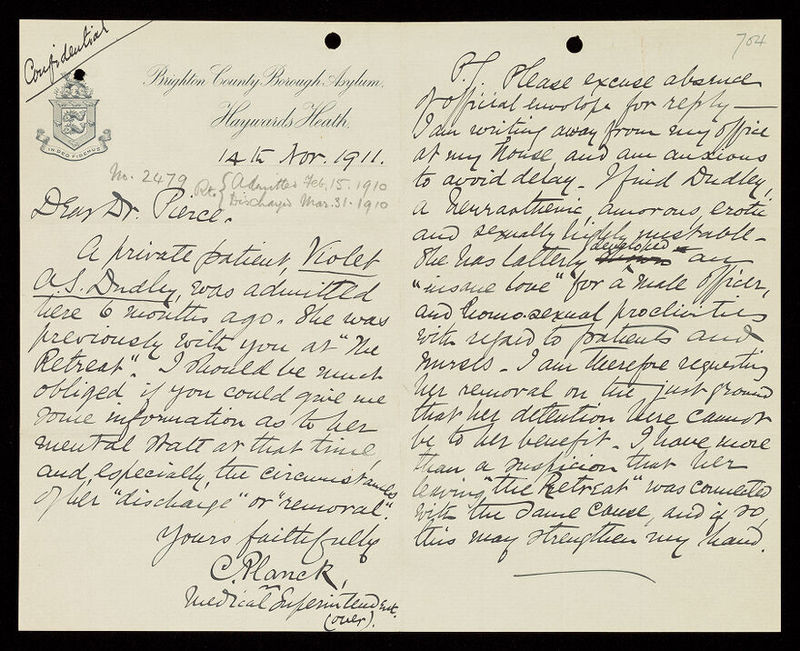 Confidential
Brighton County Borough Asylum,
Haywards Heath.
IN DEO FIDEMUS
14th Nov. 1911.
2479
Pt. { Admitted Feb. 15. 1910
Discharged Mar. 31. 1910
Dear Dr. Pierce.
A private patient, Violet
A.S. Dudley, was admitted
here 6 months ago. She was
previously with you at "The
Retreat". I should be much
obliged if you could give me
some information as to her
mental state at that time,
and, especially, the circumstances
of her "discharge" or "removal".
Yours faithfully
C. Planck,
Medical Superintendent.
(over).
704
P.S. Please excuse absence
of official envelope for reply —
I am writing away from my office
at my house and am anxious
to avoid delay. I find Dudley,
a neurasthenic, amorous, erotic
and sexually highly unstable -
She has latterly developed an
"insane love" for a male officer,
and homo-sexual proclivities
with regard to patients and
nurses. I am therefore requesting
her removal on the just ground
that her detention here cannot
be to her benefit. I have more
than a suspicion that her
leaving "the Retreat" was connected
with the same cause, and if so,
this may strengthen my hand.